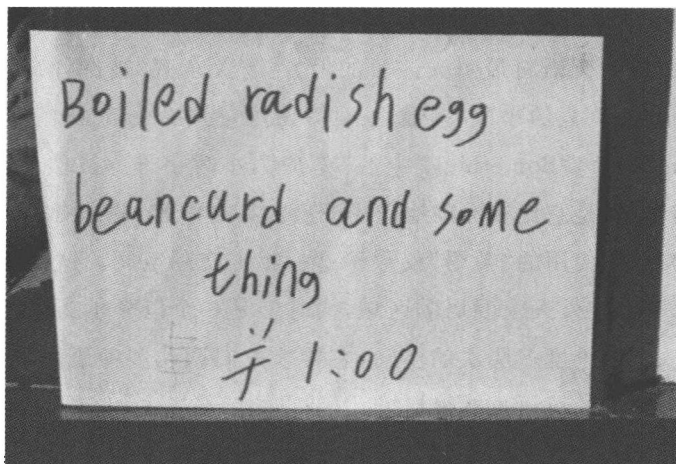 Boiled radish egg
beancurd and some
thing
¥ 1:00